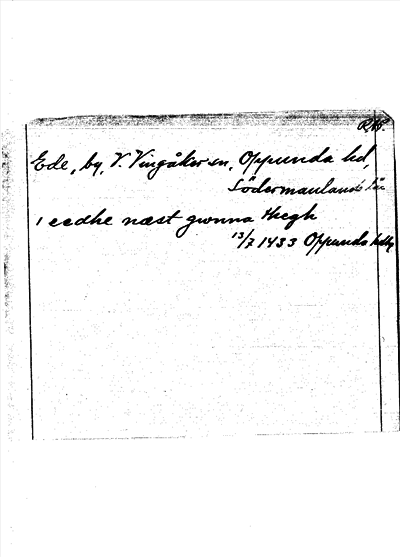 Ede, by, V. Vingåker sn, Oppunda hd,
Södermanlands län
i eedhe næst gwnna
13/7 1433 Oppunda